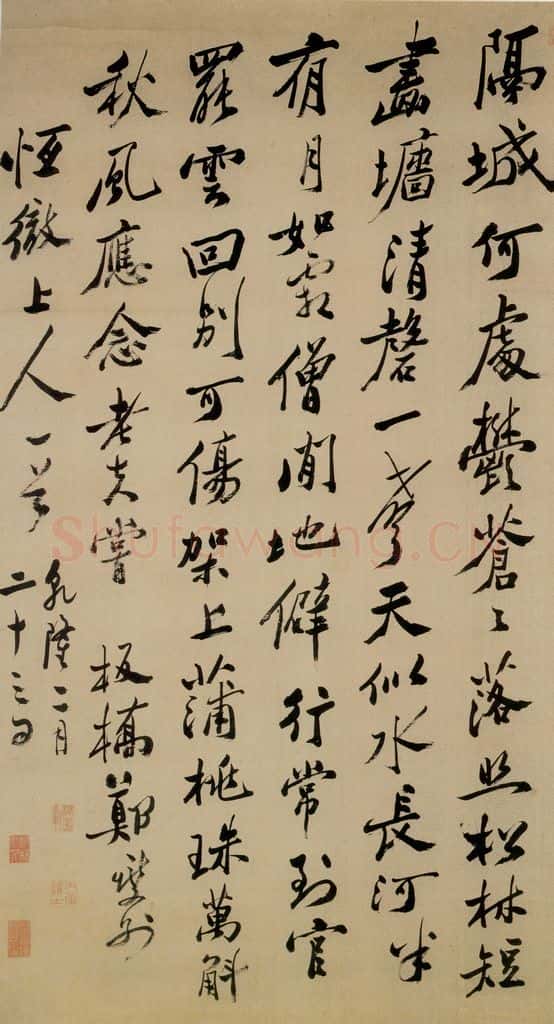 隔城何處鬱蒼々落照松林短
畵墻清磬一聲天似水長河半
夜月如霜僧閒地僻行常到官
罷雲回別可傷架上蒲桃珠萬斛
秋風應念老夫嘗 板橋鄭燮別
恒徹上人一首 乾隆二月
二十三日
shufawang.cn